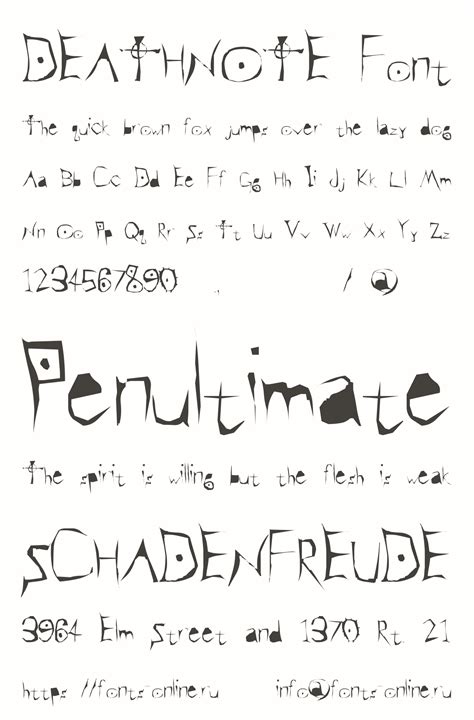 DEATHNOTE Font
The quick brown fox jumps over the lazy dog
Aa Bb Cc Dd Ee Ff Gg Hh Ii Jj Kk Ll Mm
Nn Oo Pp Qq Rr Ss Tt Uu Vv Ww Xx Yy Zz
1234567890 ., / @
Penultimate
The spirit is willing but the flesh is weak
SCHADENFREUDE
3964 Elm Street and 1370 Rt. 21
https://fonts-online.ru info@fonts-online.ru